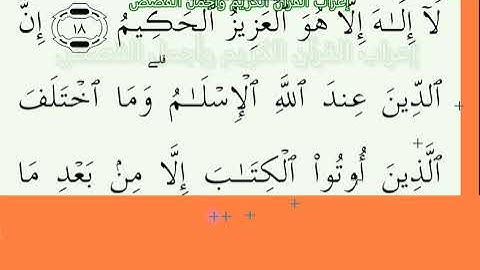 إعراب القرآن الكريم وأجمل القصص
لَآ إِلَـٰهَ إِلَّا هُوَ ٱلْعَزِيزُ ٱلْحَكِيمُ ١٨ إِنَّ
إعراب القرآن الكريم وأجمل القصص
ٱلدِّينَ عِندَ ٱللَّهِ ٱلْإِسْلَـٰمُ ۗ وَمَا ٱخْتَلَفَ
ٱلَّذِينَ أُوتُوا۟ ٱلْكِتَـٰبَ إِلَّا مِنۢ بَعْدِ مَا